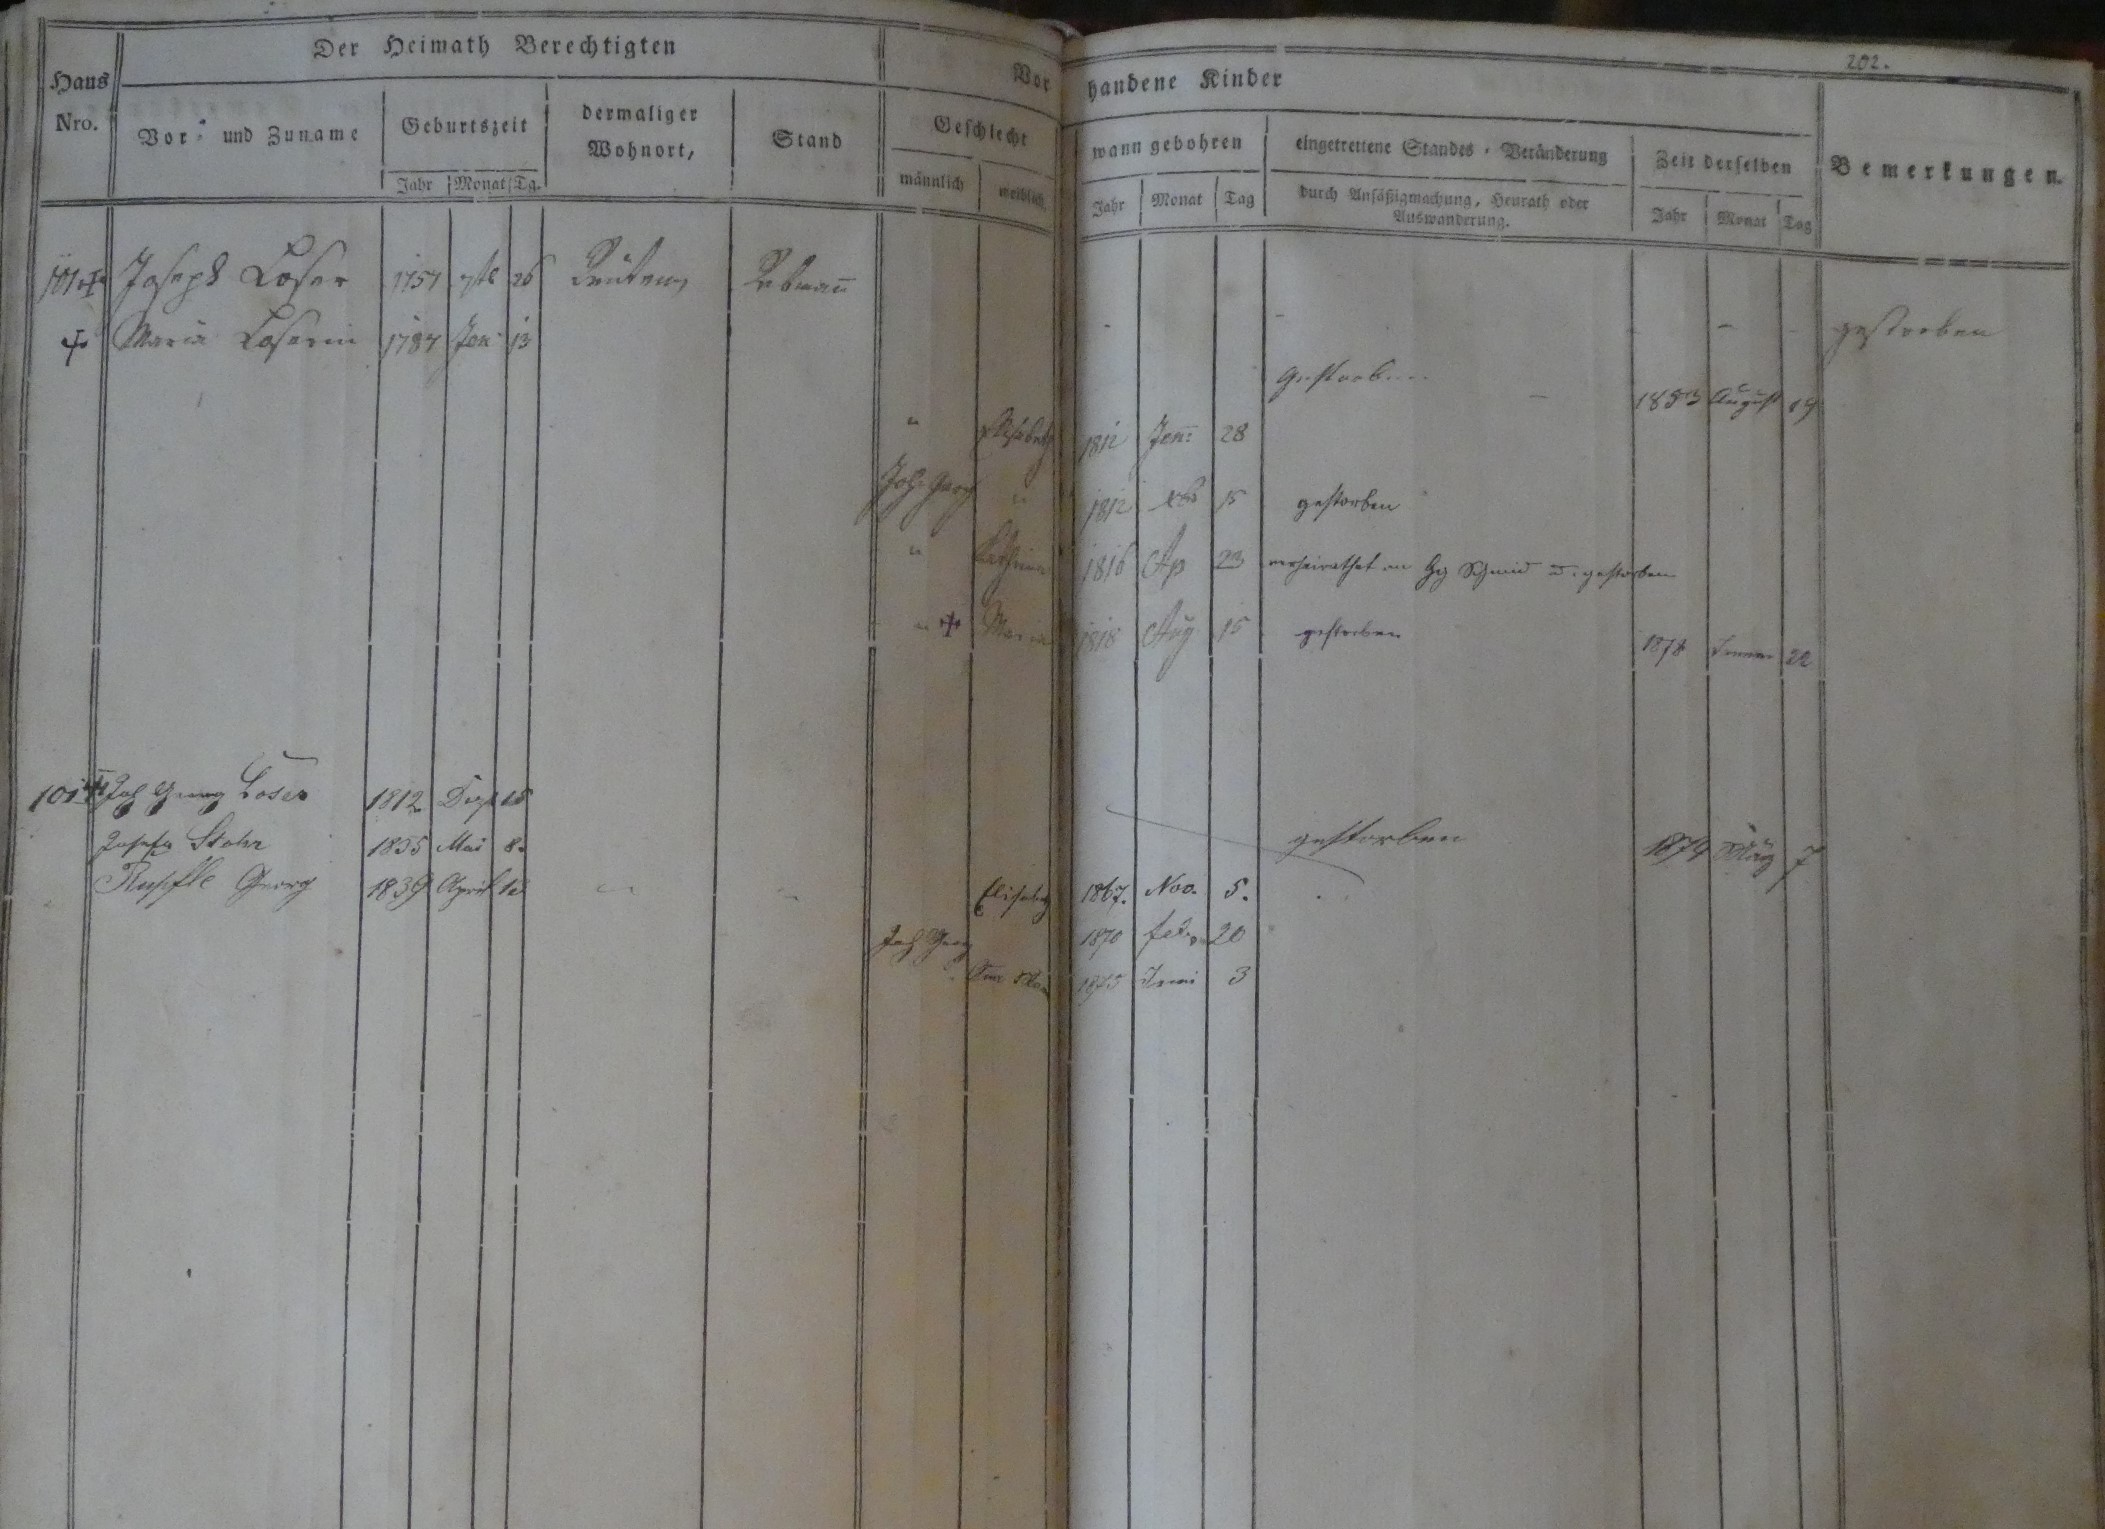 202.
Der Heimath Berechtigten
Vorhandene Kinder
Haus Nro.
Vor- und Zuname
Geburtszeit
dermaliger Wohnort,
Stand
Geschlecht
wann gebohren
eingetrettene Standes-Veränderung
Zeit derselben
Bemerkungen.
Jahr Monat Tg.
männlich weiblich.
Jahr Monat Tag
durch Ansäßigmachung, Heurath oder Auswanderung.
Jahr Monat Tag
101 Joseph Loser 1757 26 Rebmañ
- - - - - gestorben
Maria Loserin 1787 Jen 13
gestorben - 1853 August 19
" Elisabeth 1812 Jen: 28
Joh. Georg " 1812 15 gestorben
" Kathrina 1816 Ap 23 verheirathet an Gg Schmid u. gestorben
" Maria 1818 Aug 15 gestorben 1878 Jenner 22
101 Joh Georg Loser 1812 Dez 15
gestorben 1874 März 7
Josefa Stohr 1835 Mai 8.
Georg 1839 April 12
Elisabeth 1867. Nov. 5.
Joh Georg 1870 febr 20
1875 Juni 3